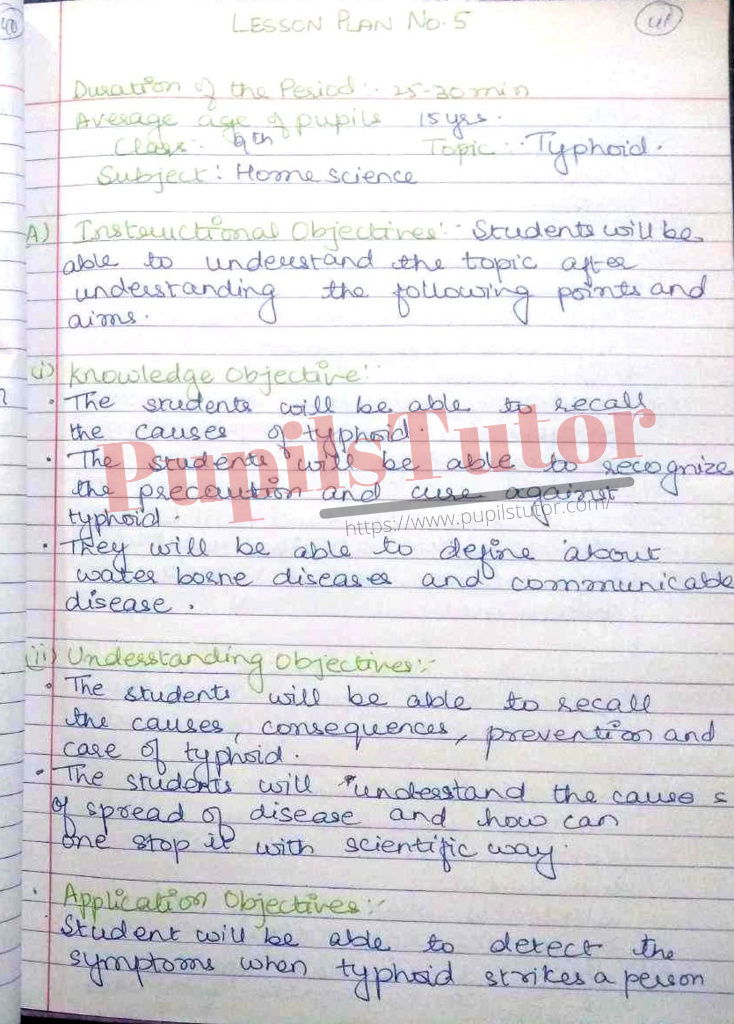 40
LESSON PLAN NO. 5
41
Duration of the Period :- 25-30 min
Average age of pupils 15 yrs.
Class : 9th Topic :- Typhoid.
Subject : Home science
A) Instructional Objectives :- Students will be
able to understand the topic after
understanding the following points and
aims.
(i) Knowledge Objective :-
• The students will be able to recall
the causes of typhoid.
• The students will be able to recognize
the precaution and cure against
typhoid.
• They will be able to define about
water borne diseases and communicable
disease.
PupilsTutor
https://www.pupilstutor.com/
(ii) Understanding Objectives :-
• The students will be able to recall
the causes, consequences, prevention and
case of typhoid.
• The students will understand the cause s
of spread of disease and how can
one stop it with scientific way.
• Application Objectives :-
Student will be able to detect the
symptoms when typhoid strikes a person